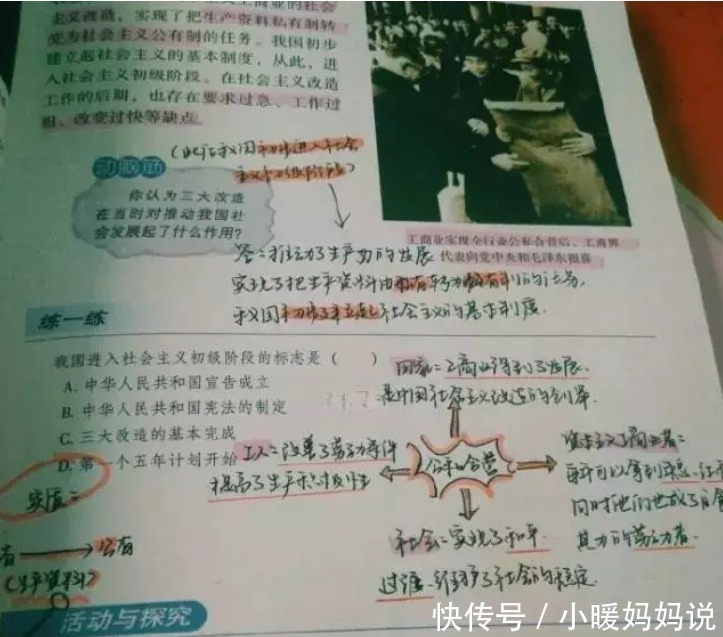 主义改造，实现了把生产资料私有制转
变为社会主义公有制的任务。我国初步
建立起社会主义的基本制度，从此，进
入社会主义初级阶段。在社会主义改造
工作的后期，也存在要求过急、工作过
粗、改变过快等缺点。
(此后我国初步进入社会
主义初级阶段)
动脑筋
你认为三大改造
在当时对推动我国社
会发展起了什么作用？
工商业实现全行业公私合营后，工商界
代表向党中央和毛泽东报喜
答：推动了生产力的发展
实现了把生产资料由
我国初步建立起社会主义的基本制度.
练一练
我国进入社会主义初级阶段的标志是（　　）
A. 中华人民共和国宣告成立
B. 中华人民共和国宪法的制定
C. 三大改造的基本完成
D. 第一个五年计划开始
国家：工商业得到了发展.
是中国社会主义改造的创举.
工人：改善了劳动条件
提高了生产积极性
公私合营
资本主义工商业者：
每年可以拿到
同时他们也成了自食
其力的劳动者.
社会：实现了和平
过渡.维护了社会的稳定.
实质：
公有
(生产资料)
活动与探究
快传号 / 小暖妈妈说